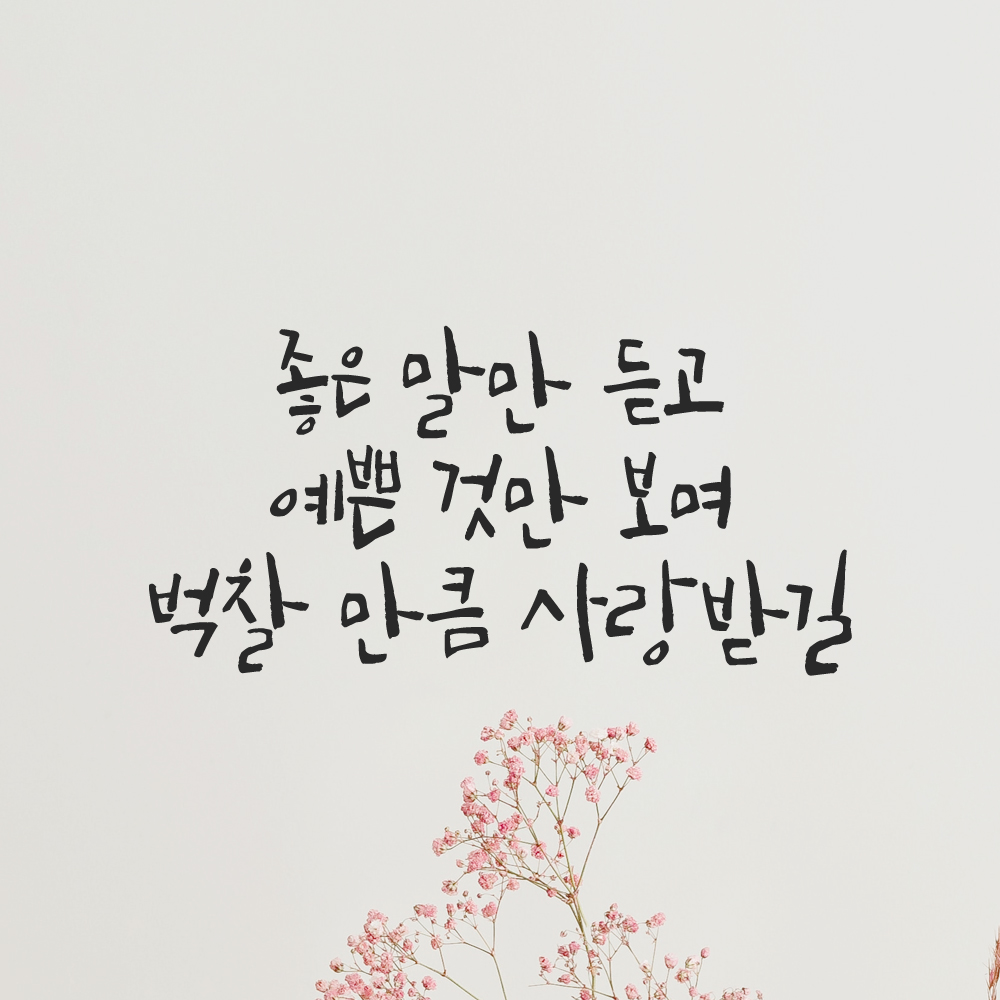 좋은 말만 듣고
예쁜 것만 보며
벅찰 만큼 사랑받길